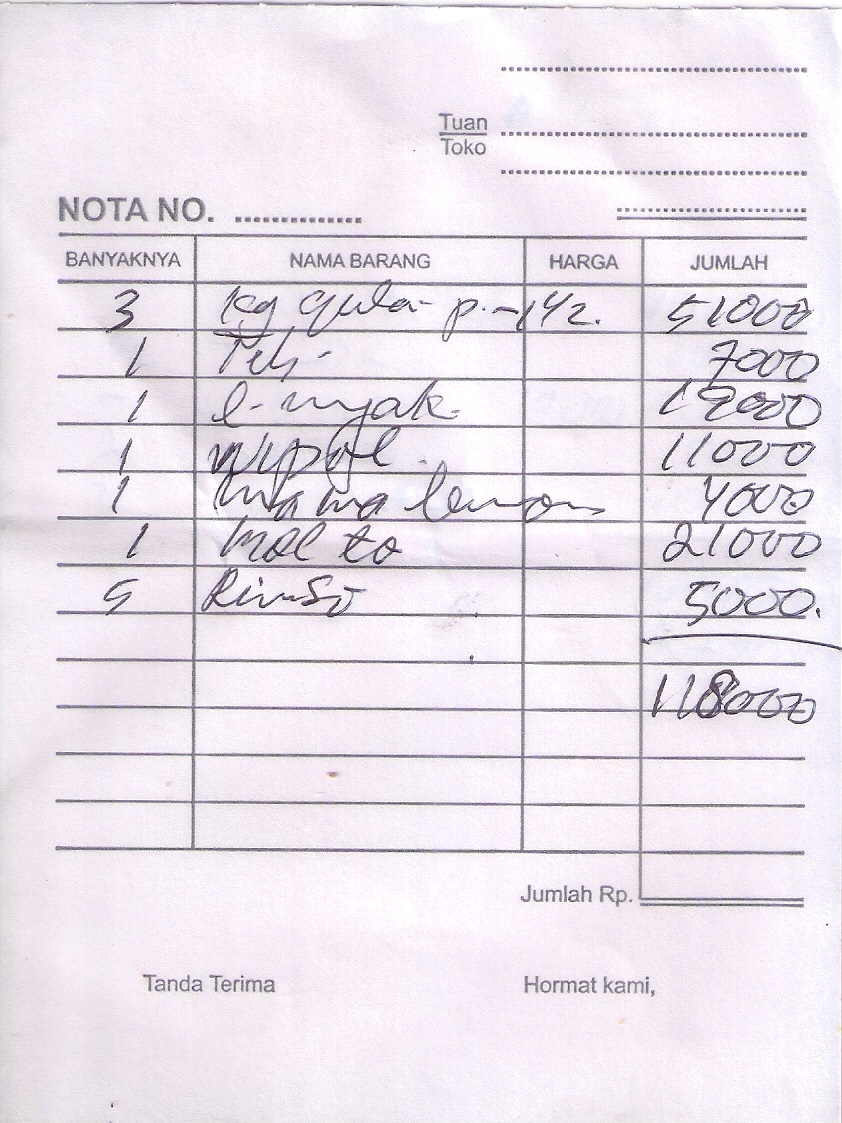 Tuan
Toko
NOTA NO.
BANYAKNYA NAMA BARANG HARGA JUMLAH
3 kg gula p. 51000
1 Teh- 7000
1 19000
1 wipol. 11000
1 mama lemon 4000
1 Molto 21000
5 Rinso 5000.
118000
Jumlah Rp.
Tanda Terima Hormat kami,